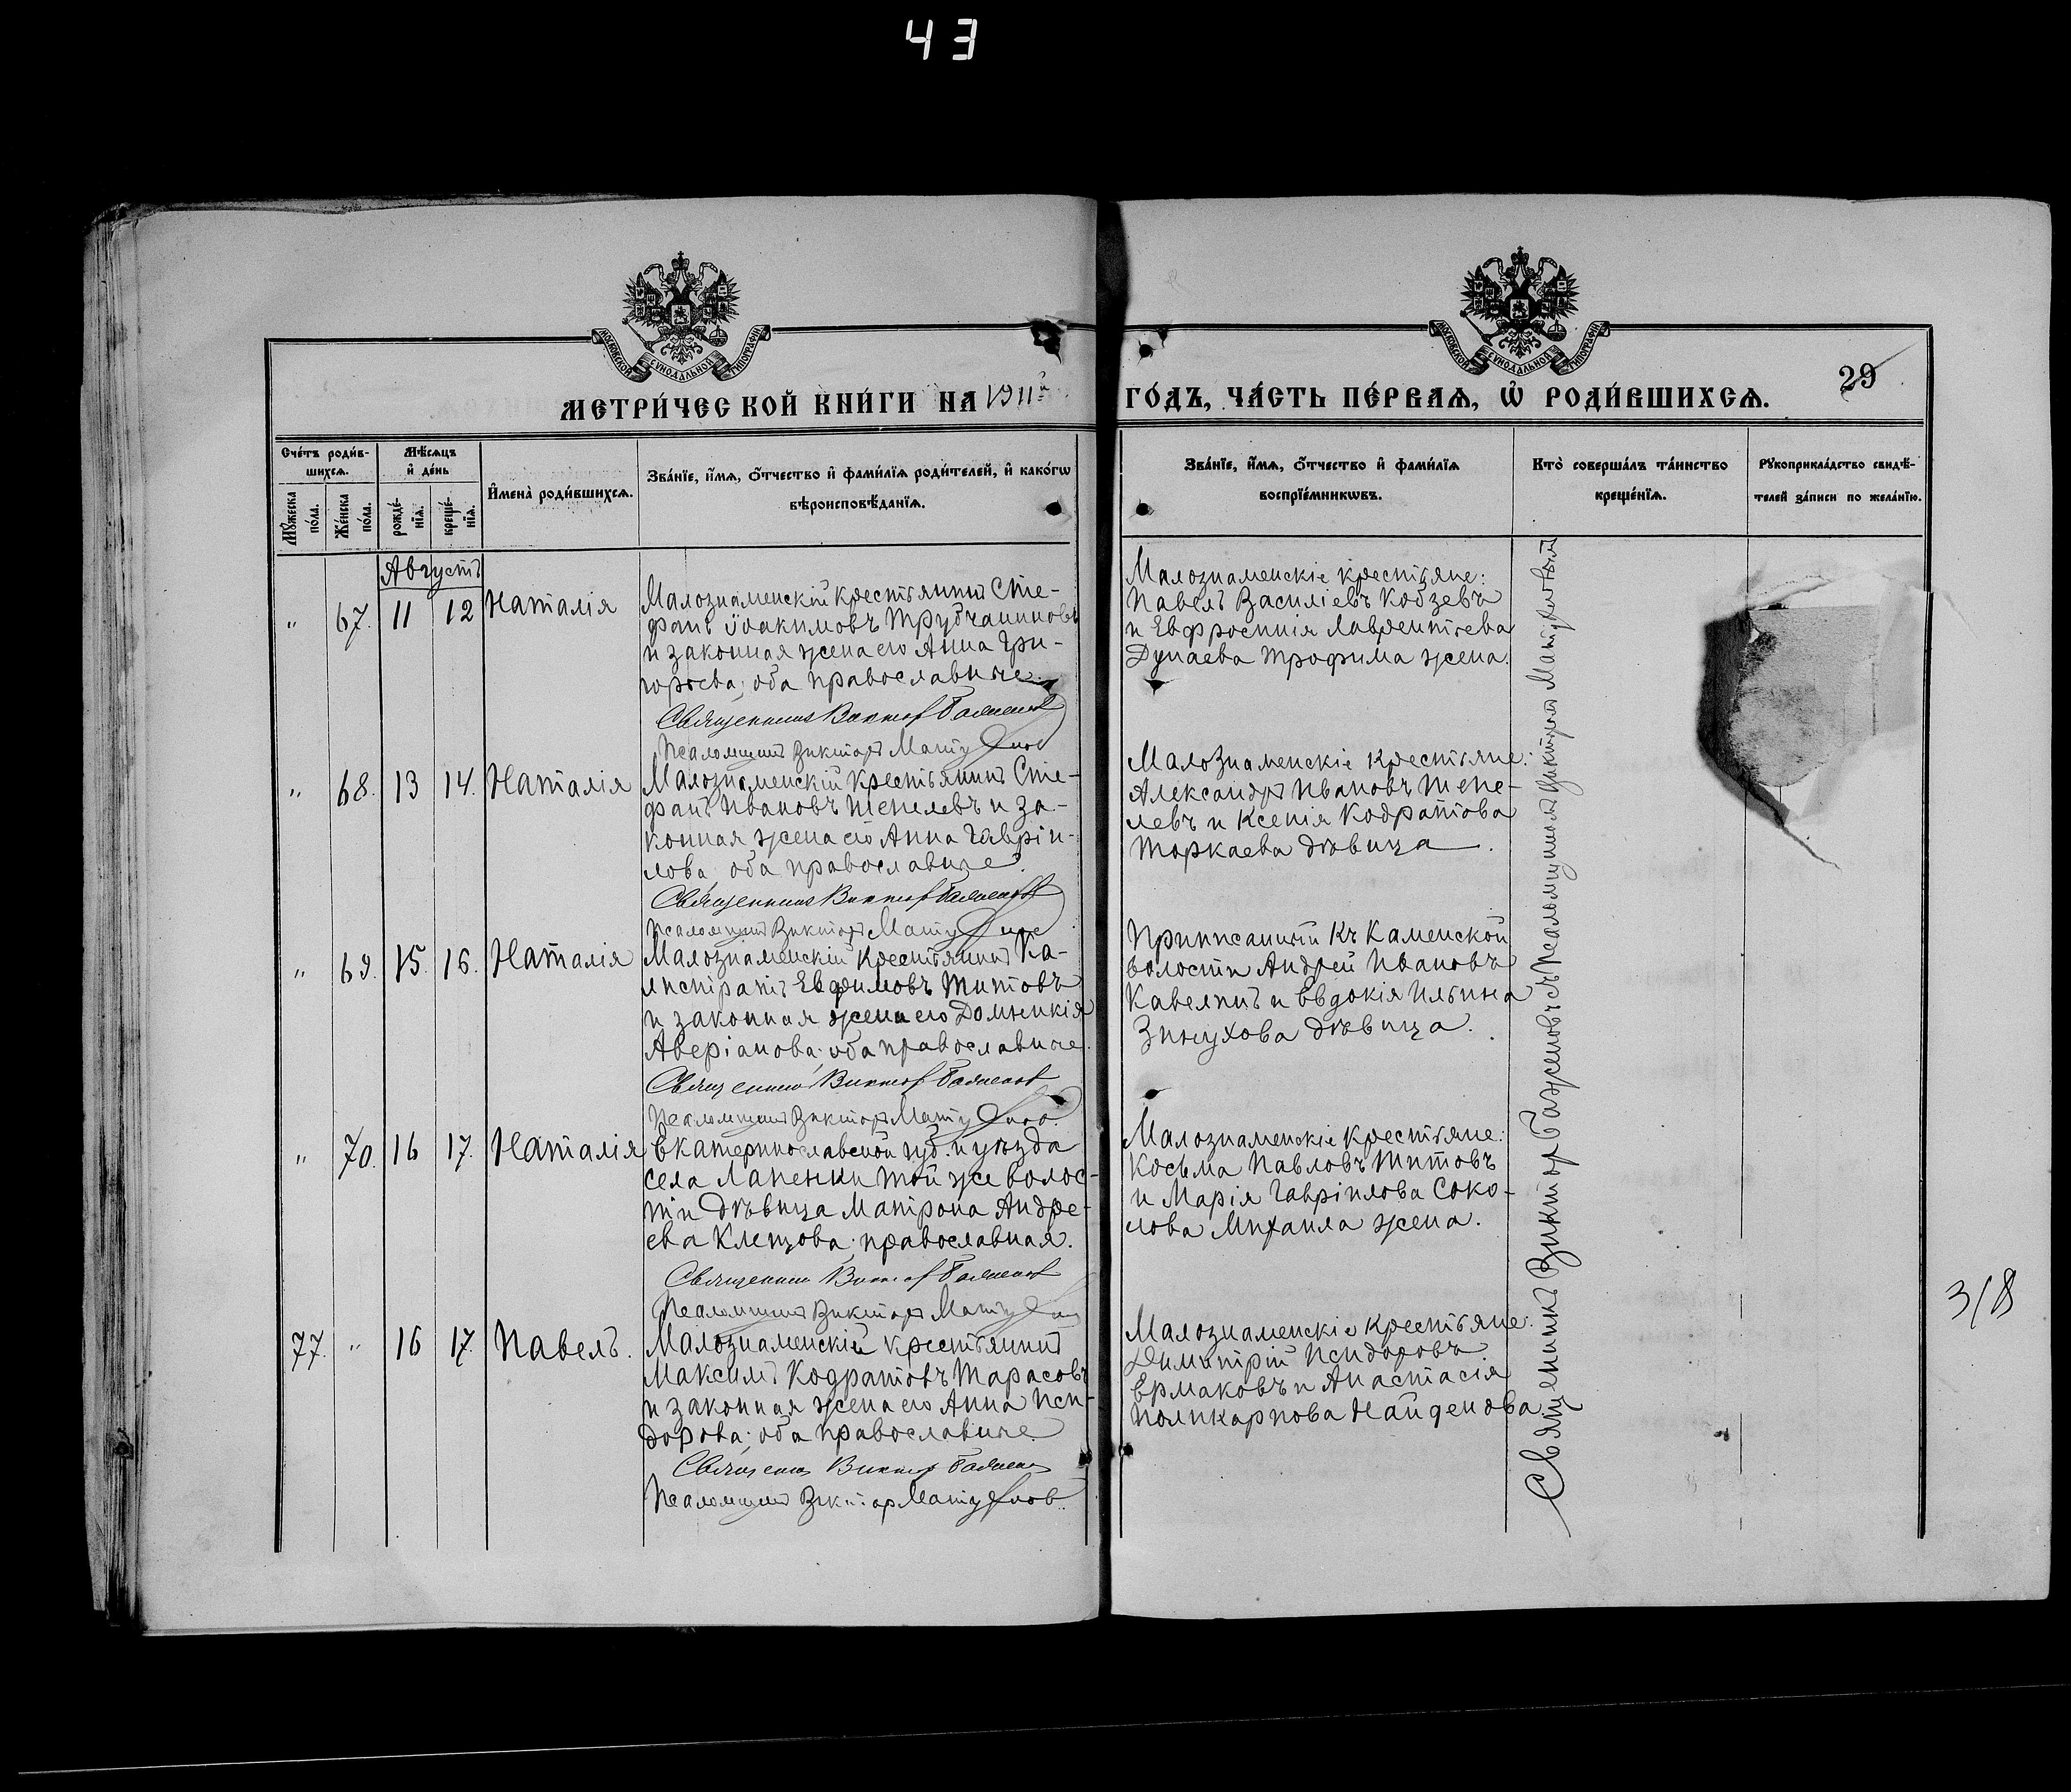 43
МОСКОВСКОЙ СѴНОДАЛЬНОЙ ТИПОГРАФІИ
МОСКОВСКОЙ СѴНОДАЛЬНОЙ ТИПОГРАФІИ
МЕТРИ́ЧЕСКОЙ КНИ́ГИ НА 1911й ГО́ДЪ, ЧА́СТЬ ПЕ́РВАѦ, Ѡ҆ РОДИ́ВШИХСѦ.
29
Сче́тъ роди́в-
шихсѧ.
Мꙋ́жеска по́ла.
Же́нска по́ла.
Мѣ́сѧцъ
и҆ де́нь
рожде́-
нїѧ.
креще́-
нїѧ.
И҆мена̀ роди́вшихсѧ.
Зва́нїе, и҆́мѧ, ѻ҆́тчество и҆ фами́лїѧ роди́телей, и҆ како́гѡ
вѣроисповѣ́данїѧ.
Зва́нїе, и҆́мѧ, ѻ҆́тчество и҆ фами́лїѧ
воспрїе́мникѡвъ.
Кто̀ соверша́лъ та́инство
креще́нїѧ.
Рꙋкоприкла́дство свидѣ́-
телей за́писи по жела́нїю.
Августъ
„ 67. 11 12 Наталія
Малознаменскій крестьянинъ Сте-
фанъ Іоакимовъ Трубчаниновъ
и законная жена его Анна Гри-
горьева; оба православные.
Священникъ Виктор Баженов
Псаломщикъ Викторъ Матуфнов
Малознаменскіе крестьяне:
Павелъ Василіевъ Кобзевъ
и Евфросинія Лаврентьева
Дунаева Трофима жена.
„ 68. 13 14. Наталія
Малознаменскій крестьянинъ Сте-
фанъ Ивановъ Тепелевъ и за-
конная жена его Анна Гавріи-
лова оба православные.
Священникъ Виктор Баженов
Псаломщикъ Викторъ
Малознаменскіе крестьяне:
Александръ Ивановъ Тепе-
левъ и Ксенія Кодратова
Торкаева дѣвица.
„ 69. 15. 16. Наталія
Малознаменскій крестьянинъ Ка-
листратъ Евфимовъ Титовъ
и законная жена его Домникія
Аверіанова; оба православные.
Священникъ Виктор Баженов
Псаломщикъ Викторъ
Приписанный къ Каменской
волости Андрей Ивановъ
Кавелинъ и Евдокія Ильина
Зинухова дѣвица.
„ 70. 16 17. Наталія
Екатеринославской губ. и уѣзда
села Лапенки той же волос-
ти дѣвица Матрона Андре-
ева Клецова; православная.
Священникъ Виктор Баженов
Псаломщикъ Викторъ
Малознаменскіе крестьяне:
Косьма Павловъ Титовъ
и Марія Гавріилова Соко-
лова Михаила жена.
77. „ 16 17. Павелъ.
Малознаменскій крестьянинъ
Максимъ Кодратовъ Тарасовъ
и законная жена его Анна Иси-
дорова; оба православные.
Священникъ Виктор Баженов
Псаломщикъ Виктор
Малознаменскіе крестьяне:
Димитрій Исидоровъ
Ермаковъ и Анастасія
Поликарпова Найденова.
Священникъ Викторъ Баженовъ съ Псаломщикомъ Викторомъ
318